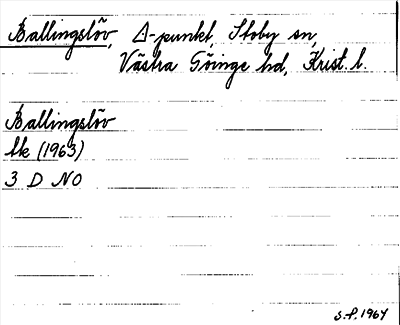 Ballingslöv, Δ-punkt, Stoby sn,
Västra Göinge hd, Krist. l.
Ballingslöv
Ek (1963)
3 D NO
S.F. 1964